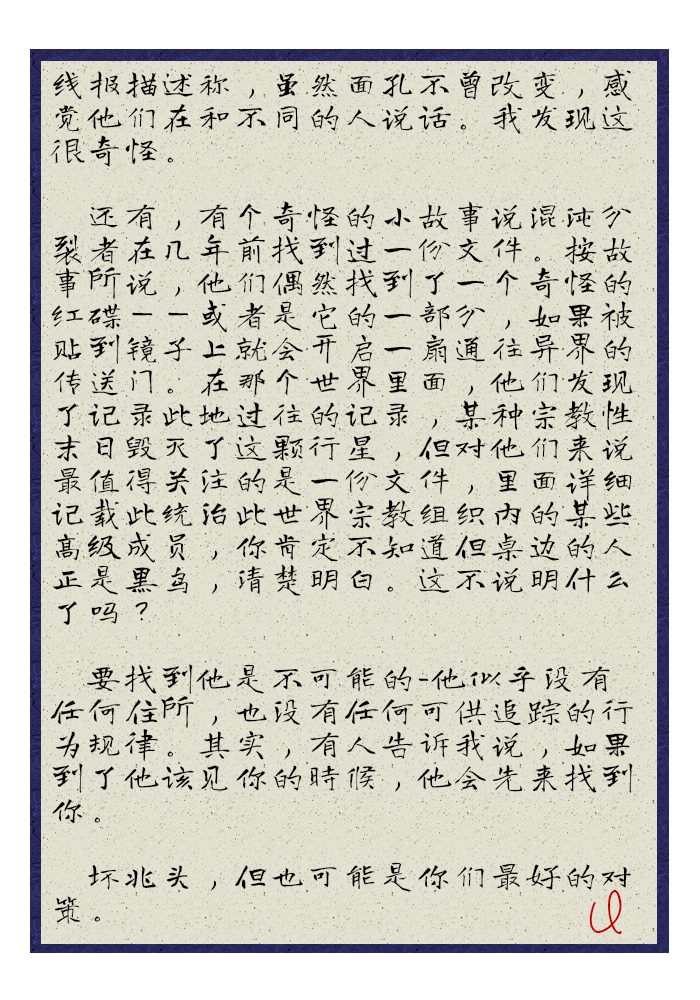 线报描述称，虽然面孔不曾改变，感
觉他们在和不同的人说话。我发现这
很奇怪。
还有，有个奇怪的小故事说混沌分
裂者在几年前找到过一份文件。按故
事所说，他们偶然找到了一个奇怪的
红碟——或者是它的一部分，如果被
贴到镜子上就会开启一扇通往异界的
传送门。在那个世界里面，他们发现
了记录此地过往的记录，某种宗教性
末日毁灭了这颗行星，但对他们来说
最值得关注的是一份文件，里面详细
记载此统治此世界宗教组织内的某些
高级成员，你肯定不知道但桌边的人
正是黑鸟，清楚明白。这不说明什么
了吗？
要找到他是不可能的-他似乎没有
任何住所，也没有任何可供追踪的行
为规律。其实，有人告诉我说，如果
到了他该见你的時候，他会先来找到
你。
坏兆头，但也可能是你们最好的对
策。